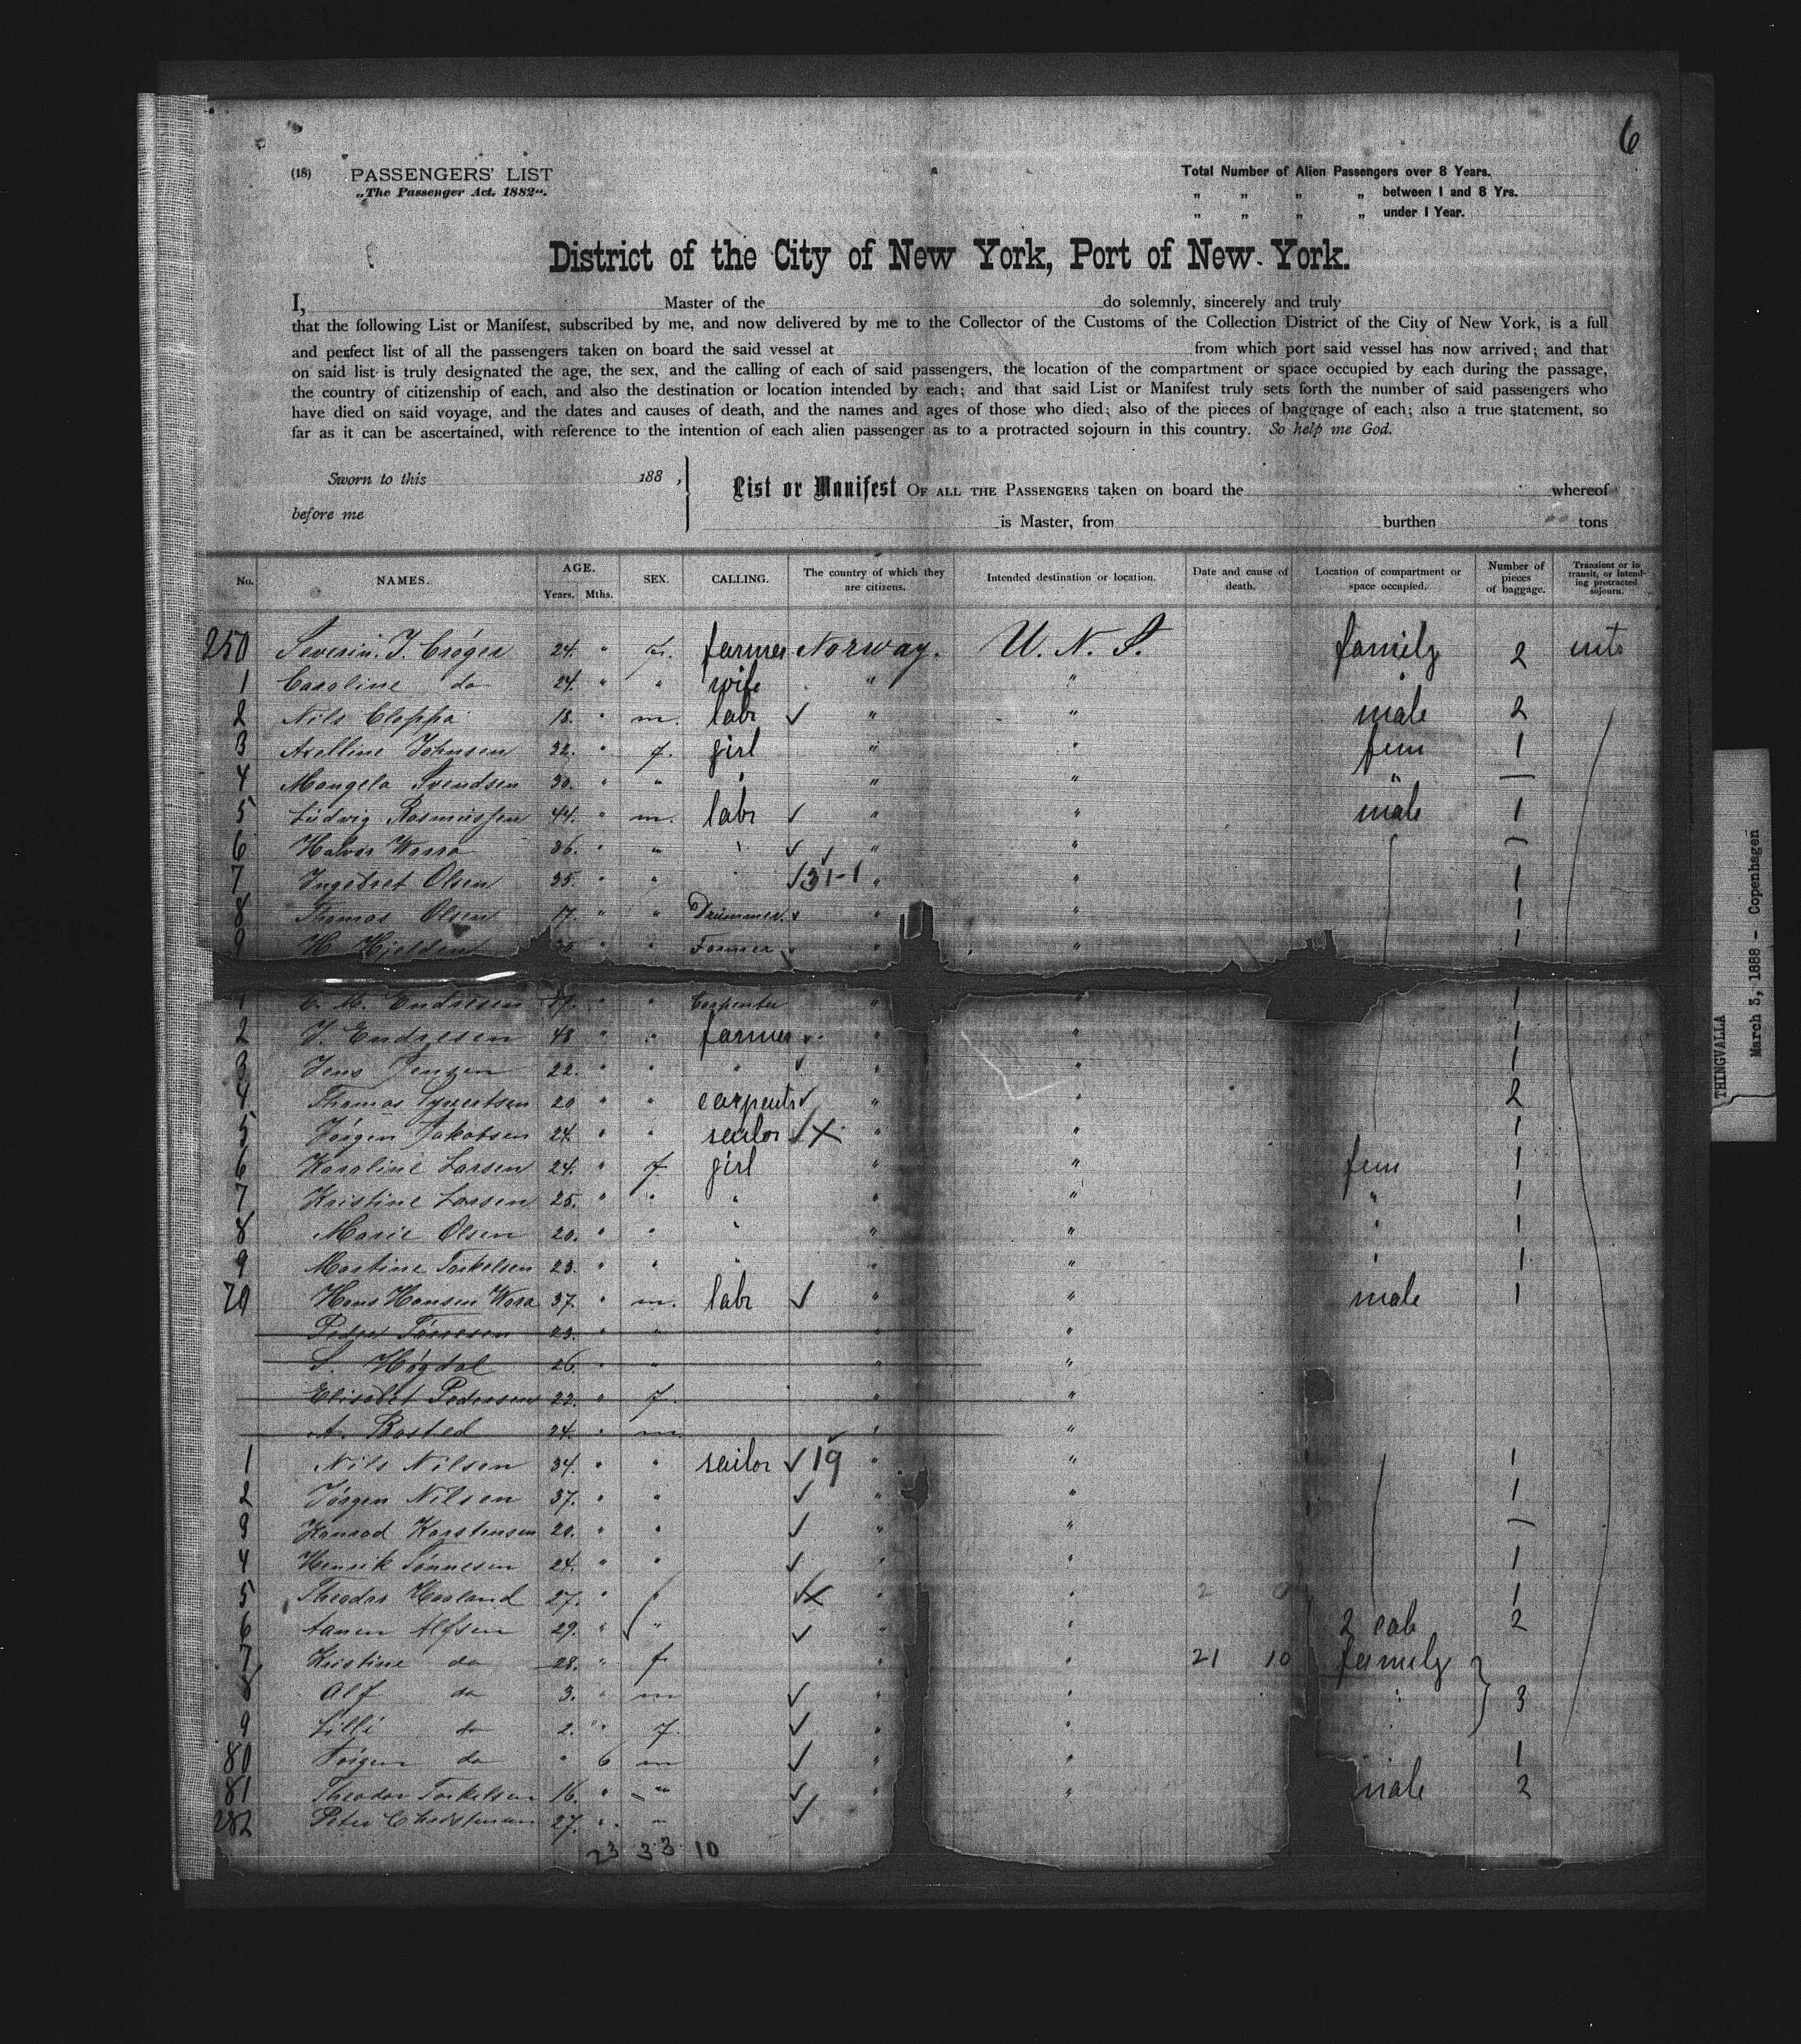 6
(18) PASSENGERS' LIST
„The Passenger Act. 1882“.
Total Number of Alien Passengers over 8 Years.
„ „ „ „ between 1 and 8 Yrs.
„ „ „ „ under 1 Year.
District of the City of New York, Port of New York.
I, Master of the do solemnly, sincerely and truly
that the following List or Manifest, subscribed by me, and now delivered by me to the Collector of the Customs of the Collection District of the City of New York, is a full
and perfect list of all the passengers taken on board the said vessel at from which port said vessel has now arrived; and that
on said list is truly designated the age, the sex, and the calling of each of said passengers, the location of the compartment or space occupied by each during the passage,
the country of citizenship of each, and also the destination or location intended by each; and that said List or Manifest truly sets forth the number of said passengers who
have died on said voyage, and the dates and causes of death, and the names and ages of those who died; also of the pieces of baggage of each; also a true statement, so
far as it can be ascertained, with reference to the intention of each alien passenger as to a protracted sojourn in this country. So help me God.
Sworn to this 188 ,
before me
List or Manifest OF ALL THE PASSENGERS taken on board the whereof
is Master, from burthen tons
No. NAMES. AGE. Years. Mths. SEX. CALLING. The country of which they are citizens. Intended destination or location. Date and cause of death. Location of compartment or space occupied. Number of pieces of baggage. Transient or in transit, or intending protracted sojourn.
250 Severin J. Cröger 24. " farmer Norway. U. N. S. family 2
1 Caroline do 24. " " wife " "
2 Nils Cloppa 18. " m. labr " " male 2
3 Axelline Johnsen 32. " f. girl " " fem 1
4 Mangela Svendsen 30. " " " " " " —
5 Ludvig Rasmussen 44. " m. labr " " male 1
6 Halvor Warra 36. " " " " " —
7 Ingebret Olsen 35. " " " 31-1 " " 1
8 Thomas Olsen 17. " " Drummer. " " 1
9 H. Hjelden " " Farmer " " 1
1 C. M. Endresen " " Carpenter " " 1
2 J. Endresen 48 " " farmer " " 1
3 Jens Jensen 22. " " " " " 1
4 Thomas Syvertsen 20 " " carpentr " " 2
5 Jörgen Jakobsen 24. " " sailor X " " 1
6 Karoline Larsen 24. " f girl " " fem 1
7 Kristine Larsen 25. " " " " " " 1
8 Marie Olsen 20. " " " " " " 1
9 Martine Torkelsen 23. " " " " " " 1
70 Hans Hansen Wara 37. " m. labr " " male 1
Peder Tönnesen 23. " " " "
S. Högdal 26. " " " "
Elisabet Pedersen 22. " f. " "
A. Bosted 24. " m " "
1 Nils Nilsen 34. " " sailor 19 " " 1
2 Jörgen Nilsen 37. " " " " 1
3 Konrad Karstensen 20. " " " " —
4 Henrik Tönnesen 24. " " " " 1
5 Theodor Haaland 27. " " X " " 1
6 Aanen Alfsen 29. " " " " 2 cab 2
7 Kristine do 28. " f " " 21 10 family
8 Alf do 3. " m " " " 3
9 Lilli do 2. " f. " " "
80 Jörgen do " 6 m " " 1
81 Theodor Torkelsen 16. " " " " male 2
282 Peter Christensen 27. " "
23 33 10
THINGVALLA
March 3, 1888 - Copenhagen